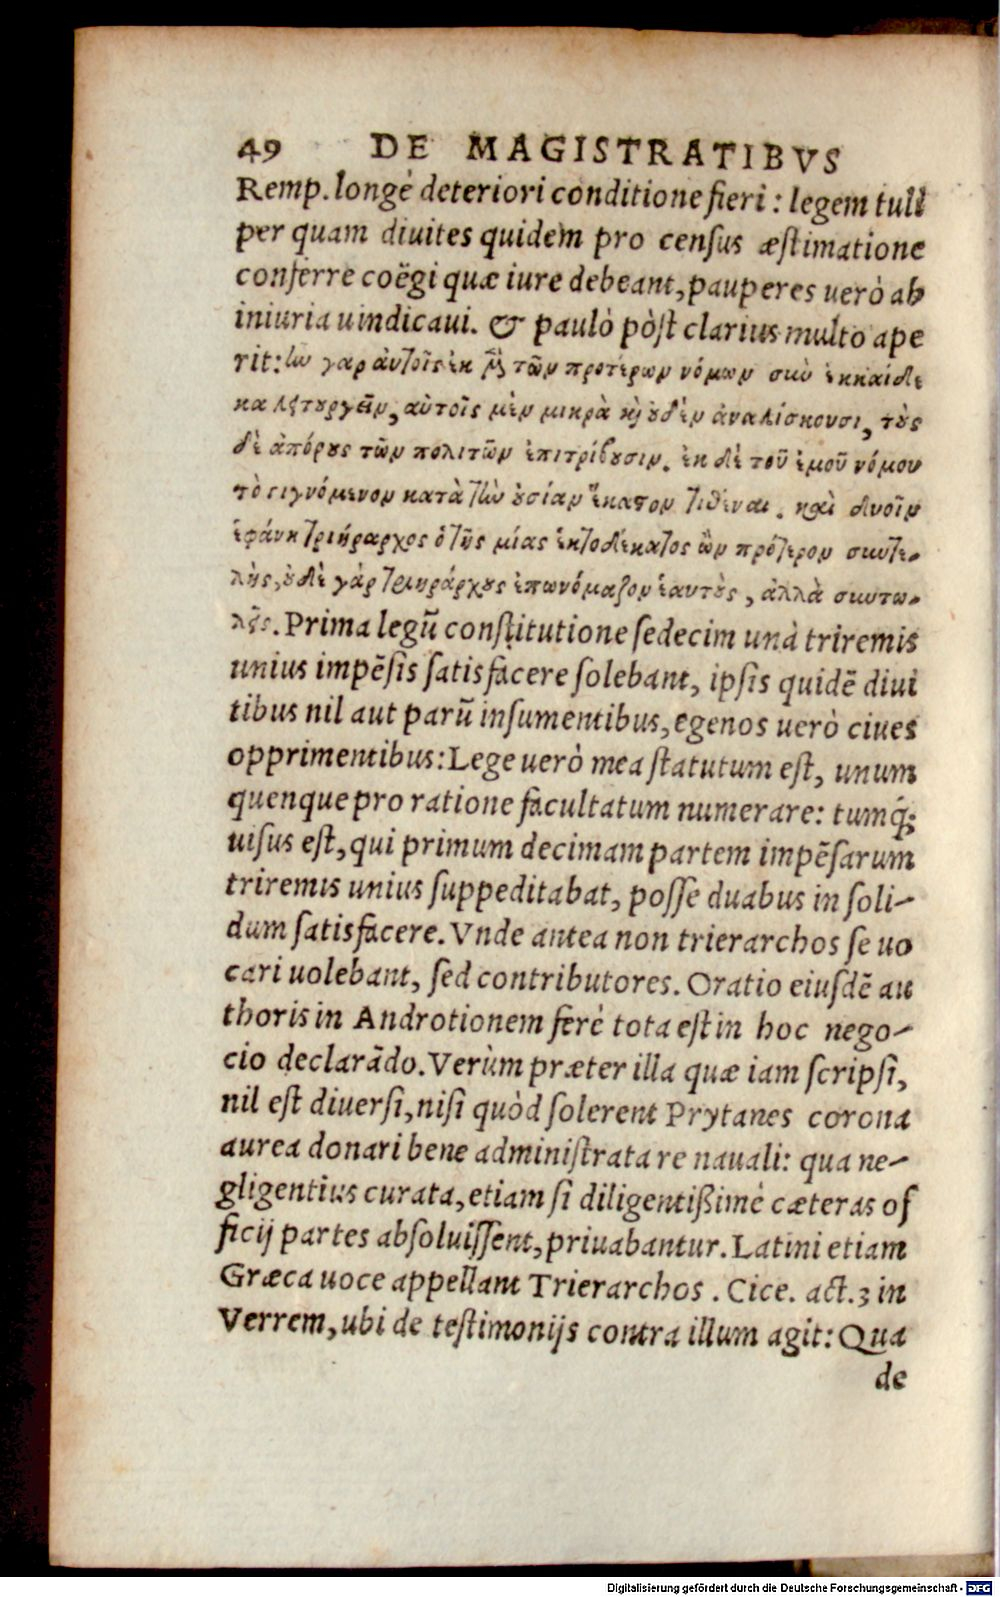 49 DE MAGISTRATIBVS
Remp. longè deteriori conditione fieri: legem tuli
per quam diuites quidem pro census æstimatione
conferre coëgi quæ iure debeant, pauperes uerò ab
iniuria uindicaui. & paulò pòst clarius multo ape
rit: ἦν γαρ ἀυτοῖς ἐκ μ̃ τῶν προτέρων νόμων συν ἑκκαίδε
κα λειτουργεῖν, αὐτοῖς μὲν μικρὰ καὶ οὐδὲν ἀναλίσκουσι, τοὺς
δὲ ἀπόρους τῶν πολιτῶν ἐπιτρίβουσιν. ἐκ δὲ τοῦ ἐμοῦ νόμου
τὸ γιγνόμενον κατὰ τὴν οὐσίαν ἕκαστον τιθέναι. καὶ δυοῖν
ἐφάνη τριήραρχος ὁ τῆς μίας ἑκτοδέκατος ὢν πρότερον συντε-
λής, οὐδὲ γὰρ τριηράρχους ἐπωνόμαζον ἑαυτοὺς, ἀλλὰ συντω-
λεῖς. Prima legũ constitutione sedecim unà triremis
unius impẽsis satisfacere solebant, ipsis quidẽ diui
tibus nil aut parũ insumentibus, egenos uerò ciues
opprimentibus: Lege uerò mea statutum est, unum
quenque pro ratione facultatum numerare: tumq́;
uisus est, qui primum decimam partem impẽsarum
triremis unius suppeditabat, posse duabus in soli-
dum satisfacere. Vnde antea non trierarchos se uo
cari uolebant, sed contributores. Oratio eiusdẽ au
thoris in Androtionem ferè tota est in hoc nego-
cio declarãdo. Verùm præter illa quæ iam scripsi,
nil est diuersi, nisi quòd solerent Prytanes corona
aurea donari bene administrata re nauali: qua ne-
gligentius curata, etiam si diligentißimè cæteras of
ficij partes absoluissent, priuabantur. Latini etiam
Græca uoce appellant Trierarchos. Cice. act. 3 in
Verrem, ubi de testimonijs contra illum agit: Qua
de
Digitalisierung gefördert durch die Deutsche Forschungsgemeinschaft - DFG